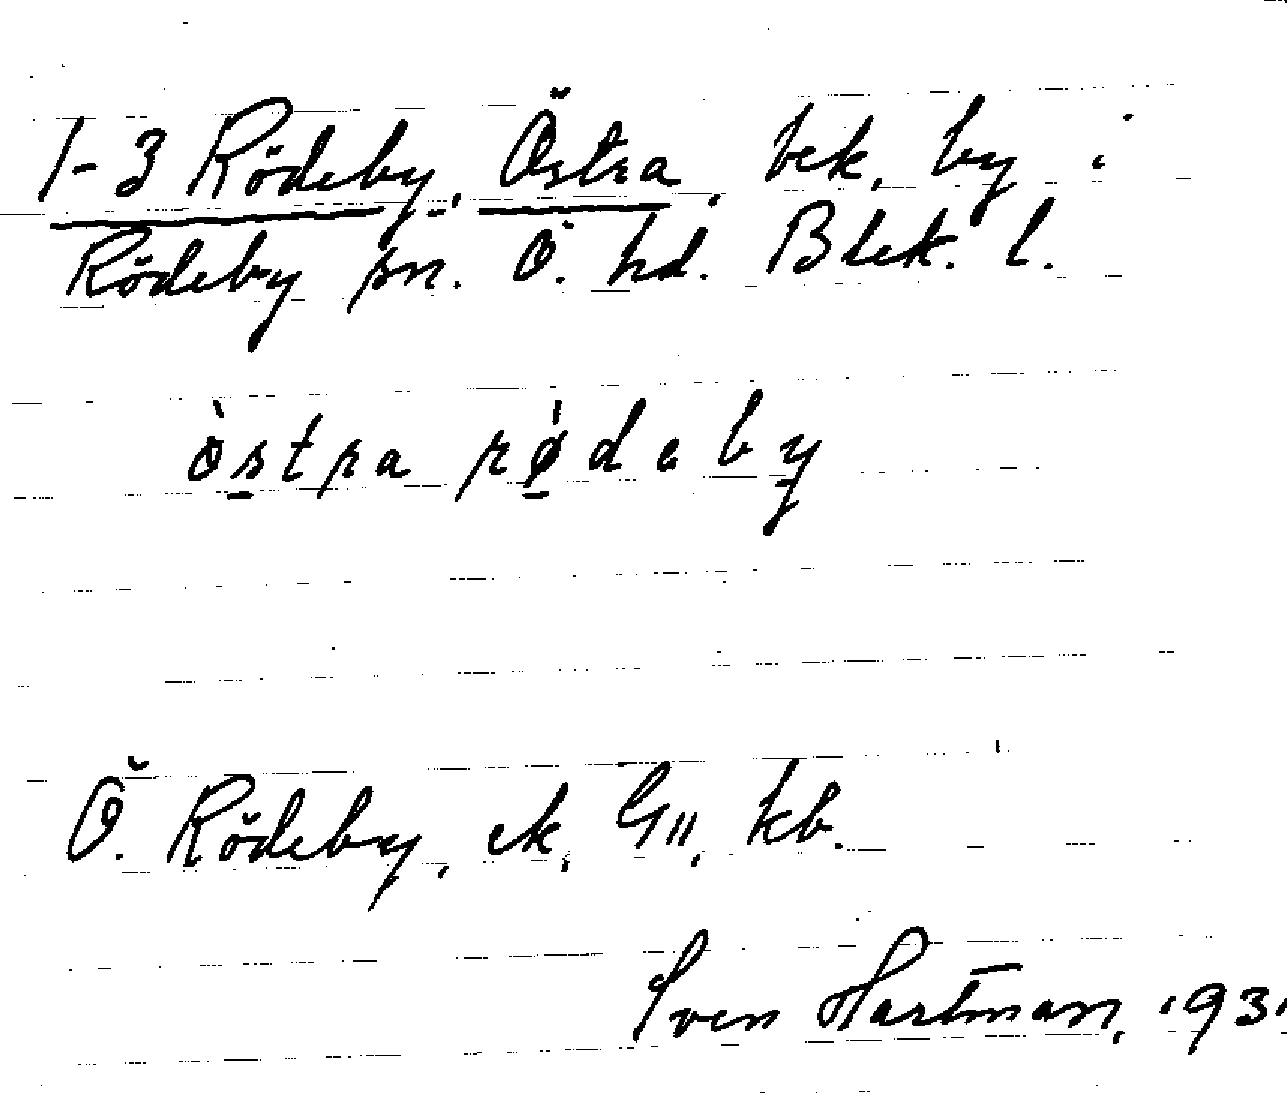 1-3 Rödeby, Östra, bek. by i
Rödeby sn. Ö. hd. Blek. l.
òstra rødeby
Ö. Rödeby, ek, GII, kb.
Sven Hartman, 1931